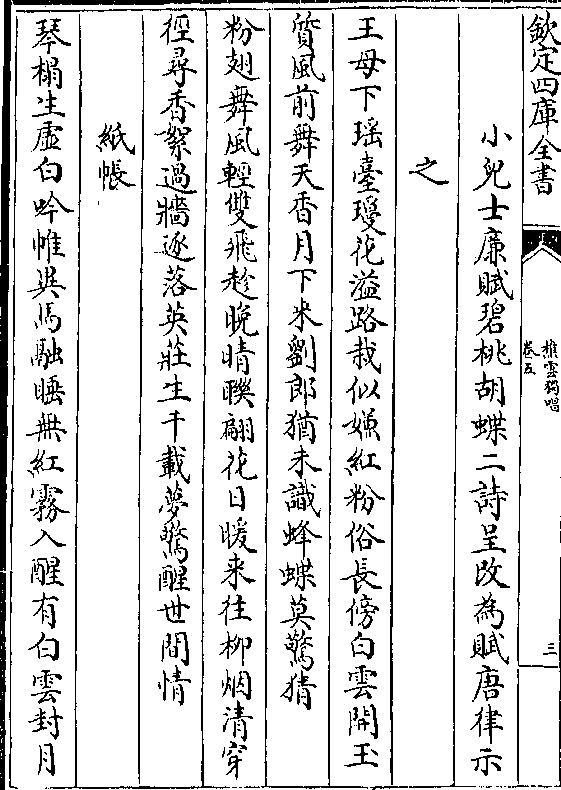 欽定四庫全書
樵雲獨唱
卷五
三
小兒士廉賦碧桃胡蝶二詩呈改為賦唐律示
之
王母下瑤臺瓊花溢路栽似嫌紅粉俗長傍白雲開玉
質風前舞天香月下来劉郎猶未識蜂蝶莫驚猜
粉翅舞風輕雙飛趁晚晴聯翩花日暖来往柳烟清穿
徑尋香絮過牆逐落英莊生千載夢驚醒世間情
紙帳
琴榻生虛白吟帷異馬融睡無紅霧入醒有白雲封月